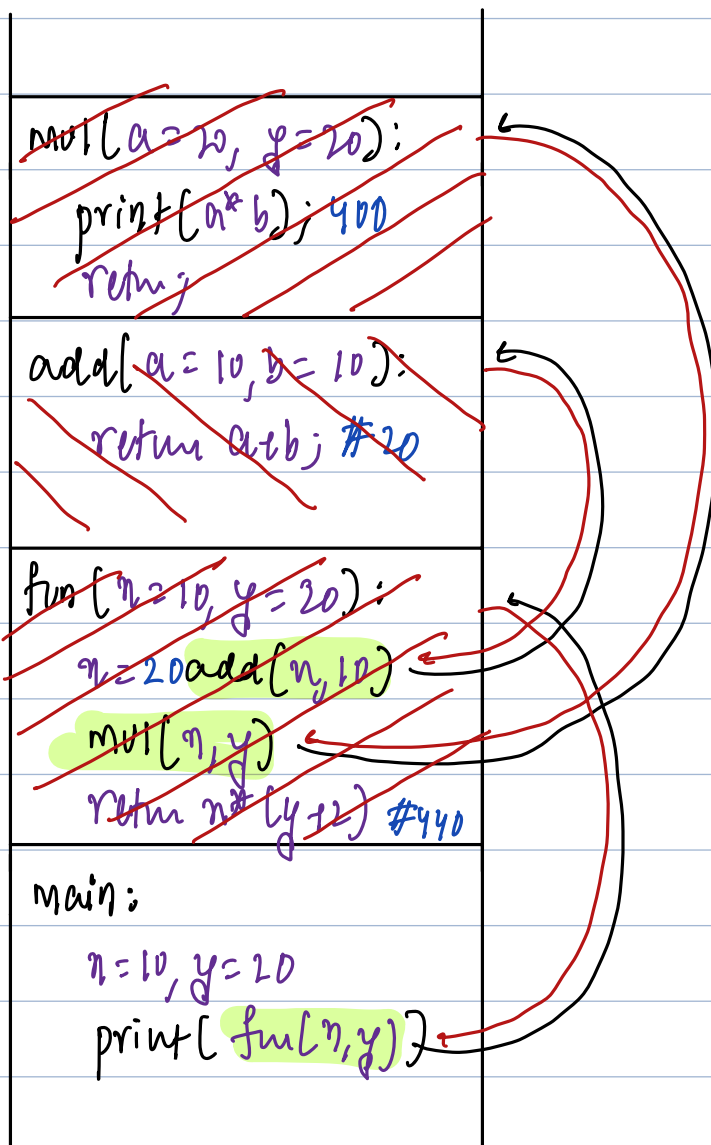 mul(a=20, y=20):
print(a*b); 400
retun;
add(a=10, b=10):
return a+b; #20
fun(x=10, y=20):
x=20 add(x,10)
mul(x,y)
return x*(y+2) #440
main:
x=10, y=20
print(fun(x,y))